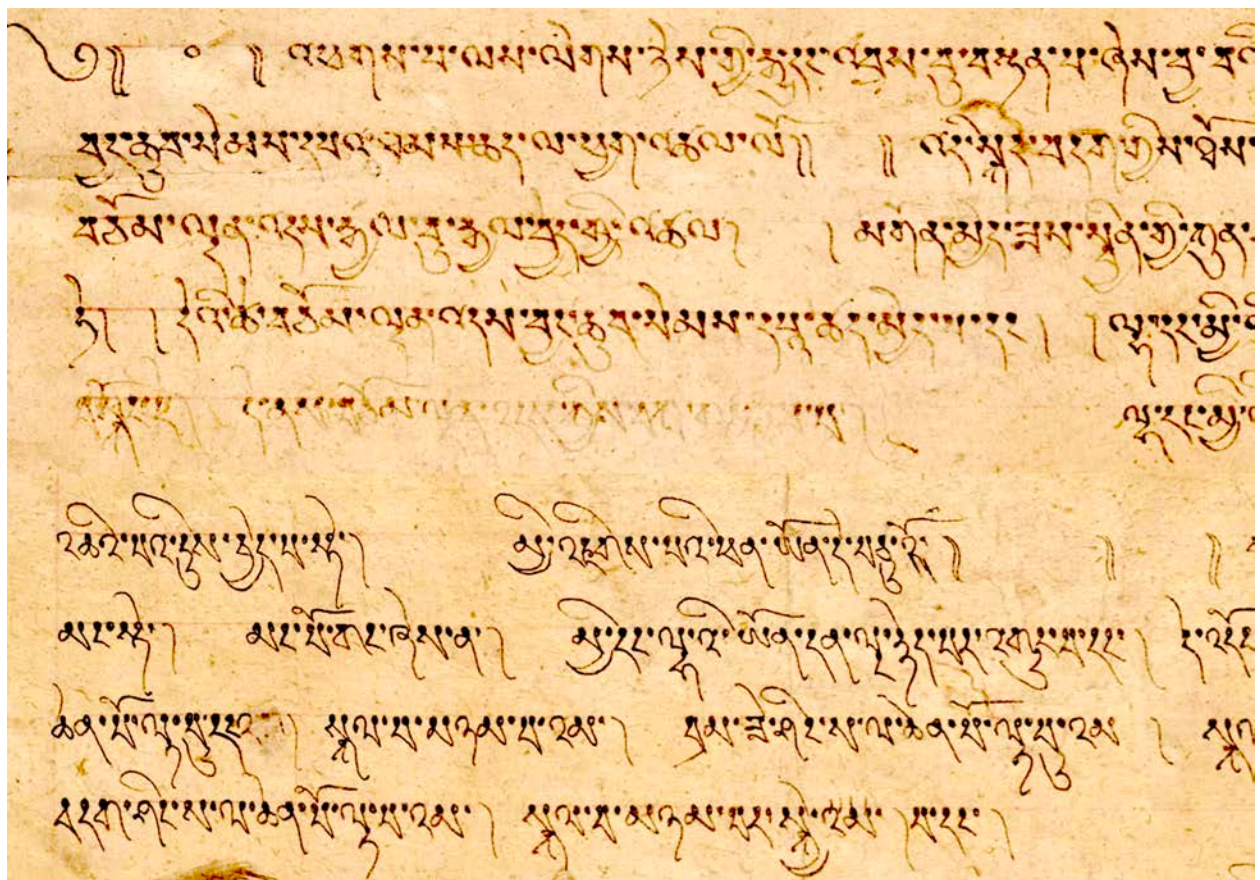 ༄༅།། ༠ །། འཕགས་པ་ལས་ལེགས་ཉེས་གྱི་རྒྱུ་དང་འབྲས་བུ་བསྟན་པ་ཞེས་བྱ་བའི
བྱང་ཆུབ་སེམས་དཔའ་ཐམས་ཅད་ལ་ཕྱག་འཚལ་ལོ།། །། འདི་སྐད་བདག་གིས་ཐོས་
བཅོམ་ལྡན་འདས་རྒྱལ་བུ་རྒྱལ་བྱེད་ཀྱི་འཚལ། ། མགོན་མྱེད་ཟས་སྦྱིན་གྱི་ཀུན་
ཏེ། ། དེའི་ཚེ་བཅོམ་ལྡན་འདས་བྱང་ཆུབ་སེམས་དཔའ་ཚད་མྱེད་པ་དང་། ། ལྷ་དང་མྱི་
དེ་ནས་བཅོམ་ལྡན་ ལྷ་དང་མྱི་
དུས་བྱེད་པ་སྟེ། མྱི་འཇིགས་པའི་ཕན་ཡོན་དེ་བཅུའོ།། །། །།
མང་སྟེ། མང་པོ་གང་ཞེས་ན། མྱི་དང་ལྷའི་ཡོན་ཏན་ལྟ་རྙེད་པར་འགྱུར་བ་དང་། དེ་
ཆེན་པོ་ལྟ་བུ་དང་། སྐལ་པ་མཉམ་པ་འམ། བྲམ་ཟེ་ཤིང་ས་ལ་ཆེན་པོ་ལྟ་བུ་འམ། སྐལ
བདག་ཤིང་ས་ལ་ཆེན་པོ་ལྟ་བུ་འམ། སྐལ་པ་མཉམ་པར་སྐྱེ་འམ། པ་དང་།